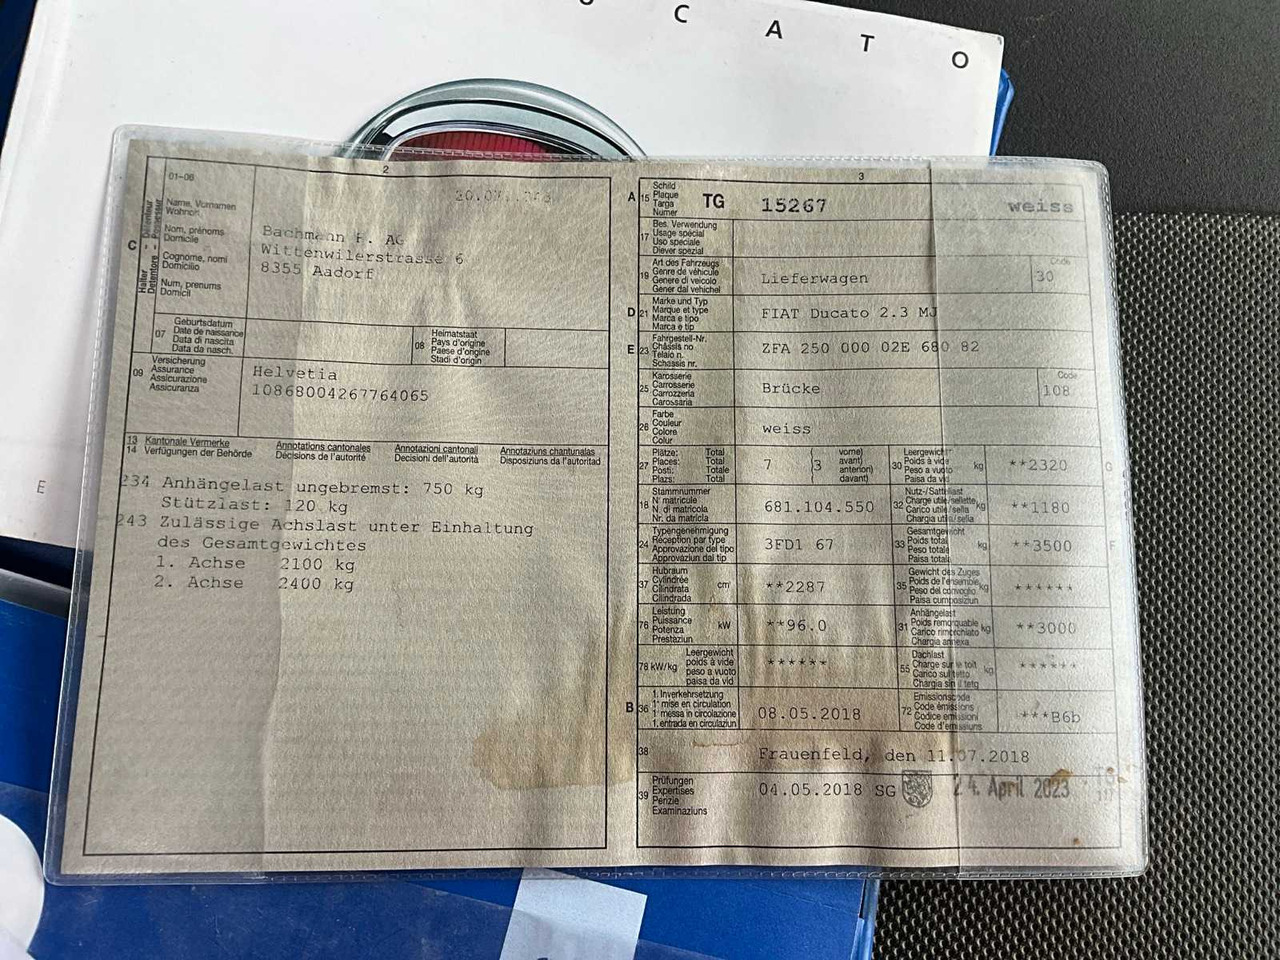 C A T O
E
2
01-06
C
Halter Détenteur
Detentore Possessur
Name, Vornamen
Wohnort
Nom, prénoms
Domicile
Cognome, nomi
Domicilio
Num, prenums
Domicil
Bachmann F. AG
Wittenwilerstrasse 6
8355 Aadorf
07 Geburtsdatum
Date de naissance
Data di nascita
Data da nasch.
08 Heimatstaat
Pays d'origine
Paese d'origine
Stadi d'origin
09 Versicherung
Assurance
Assicurazione
Assicuranza
Helvetia
10868004267764065
13 Kantonale Vermerke Annotations cantonales Annotazioni cantonali Annotaziuns chantunalas
14 Verfügungen der Behörde Décisions de l'autorité Decisioni dell'autorità Disposiziuns da l'autoritad
234 Anhängelast ungebremst: 750 kg
Stützlast: 120 kg
243 Zulässige Achslast unter Einhaltung
des Gesamtgewichtes
1. Achse 2100 kg
2. Achse 2400 kg
3
A 15 Schild
Plaque
Targa
Numer
TG 15267 weiss
17 Bes. Verwendung
Usage spécial
Uso speciale
Diever spezial
19 Art des Fahrzeugs
Genre de véhicule
Genere di veicolo
Gener dal vehichel
Lieferwagen
Code
30
D 21 Marke und Typ
Marque et type
Marca e tipo
Marca e tip
FIAT Ducato 2.3 MJ
E 23 Fahrgestell-Nr.
Châssis no
Telaio n.
Schassis nr.
ZFA 250 000 02E 680 82
25 Karosserie
Carrosserie
Carrozzeria
Carossaria
Brücke
Code
108
26 Farbe
Couleur
Colore
Colur
weiss
27 Plätze: Total
Places: Total
Posti: Totale
Plazs: Total
7 (3 vorne)
avant)
anteriori)
davant)
30 Leergewicht
Poids à vide
Peso a vuoto
Paisa da vid
kg **2320 G
18 Stammnummer
N° matricule
N. di matricola
Nr. da matricla
681.104.550
32 Nutz-/Sattellast
Charge utile/sellette
Carico utile/sella
Chargia utila/sella
kg **1180
24 Typengenehmigung
Réception par type
Approvazione del tipo
Approvaziun dal tip
3FD1 67
33 Gesamtgewicht
Poids total
Peso totale
Paisa totala
kg **3500 F
37 Hubraum
Cylindrée
Cilindrata
Cilindrada
cm³ **2287
35 Gewicht des Zuges
Poids de l'ensemble
Peso del convoglio
Paisa cumposiziun
kg ******
76 Leistung
Puissance
Potenza
Prestaziun
kW **96.0
31 Anhängelast
Poids remorquable
Carico rimorchiato
Chargia annexa
kg **3000
78 kW/kg Leergewicht
poids à vide
peso a vuoto
paisa da vid
******
55 Dachlast
Charge sur le toit
Carico sul tetto
Chargia sin il tetg
kg ******
B 36 1. Inverkehrsetzung
1re mise en circulation
1a messa in circolazione
1. entrada en circulaziun
08.05.2018
72 Emissionscode
Code émissions
Codice emissioni
Code d'emissiuns
***B6b
38 Frauenfeld, den 11.07.2018
39 Prüfungen
Expertises
Perizie
Examinaziuns
04.05.2018 SG 24. April 2023